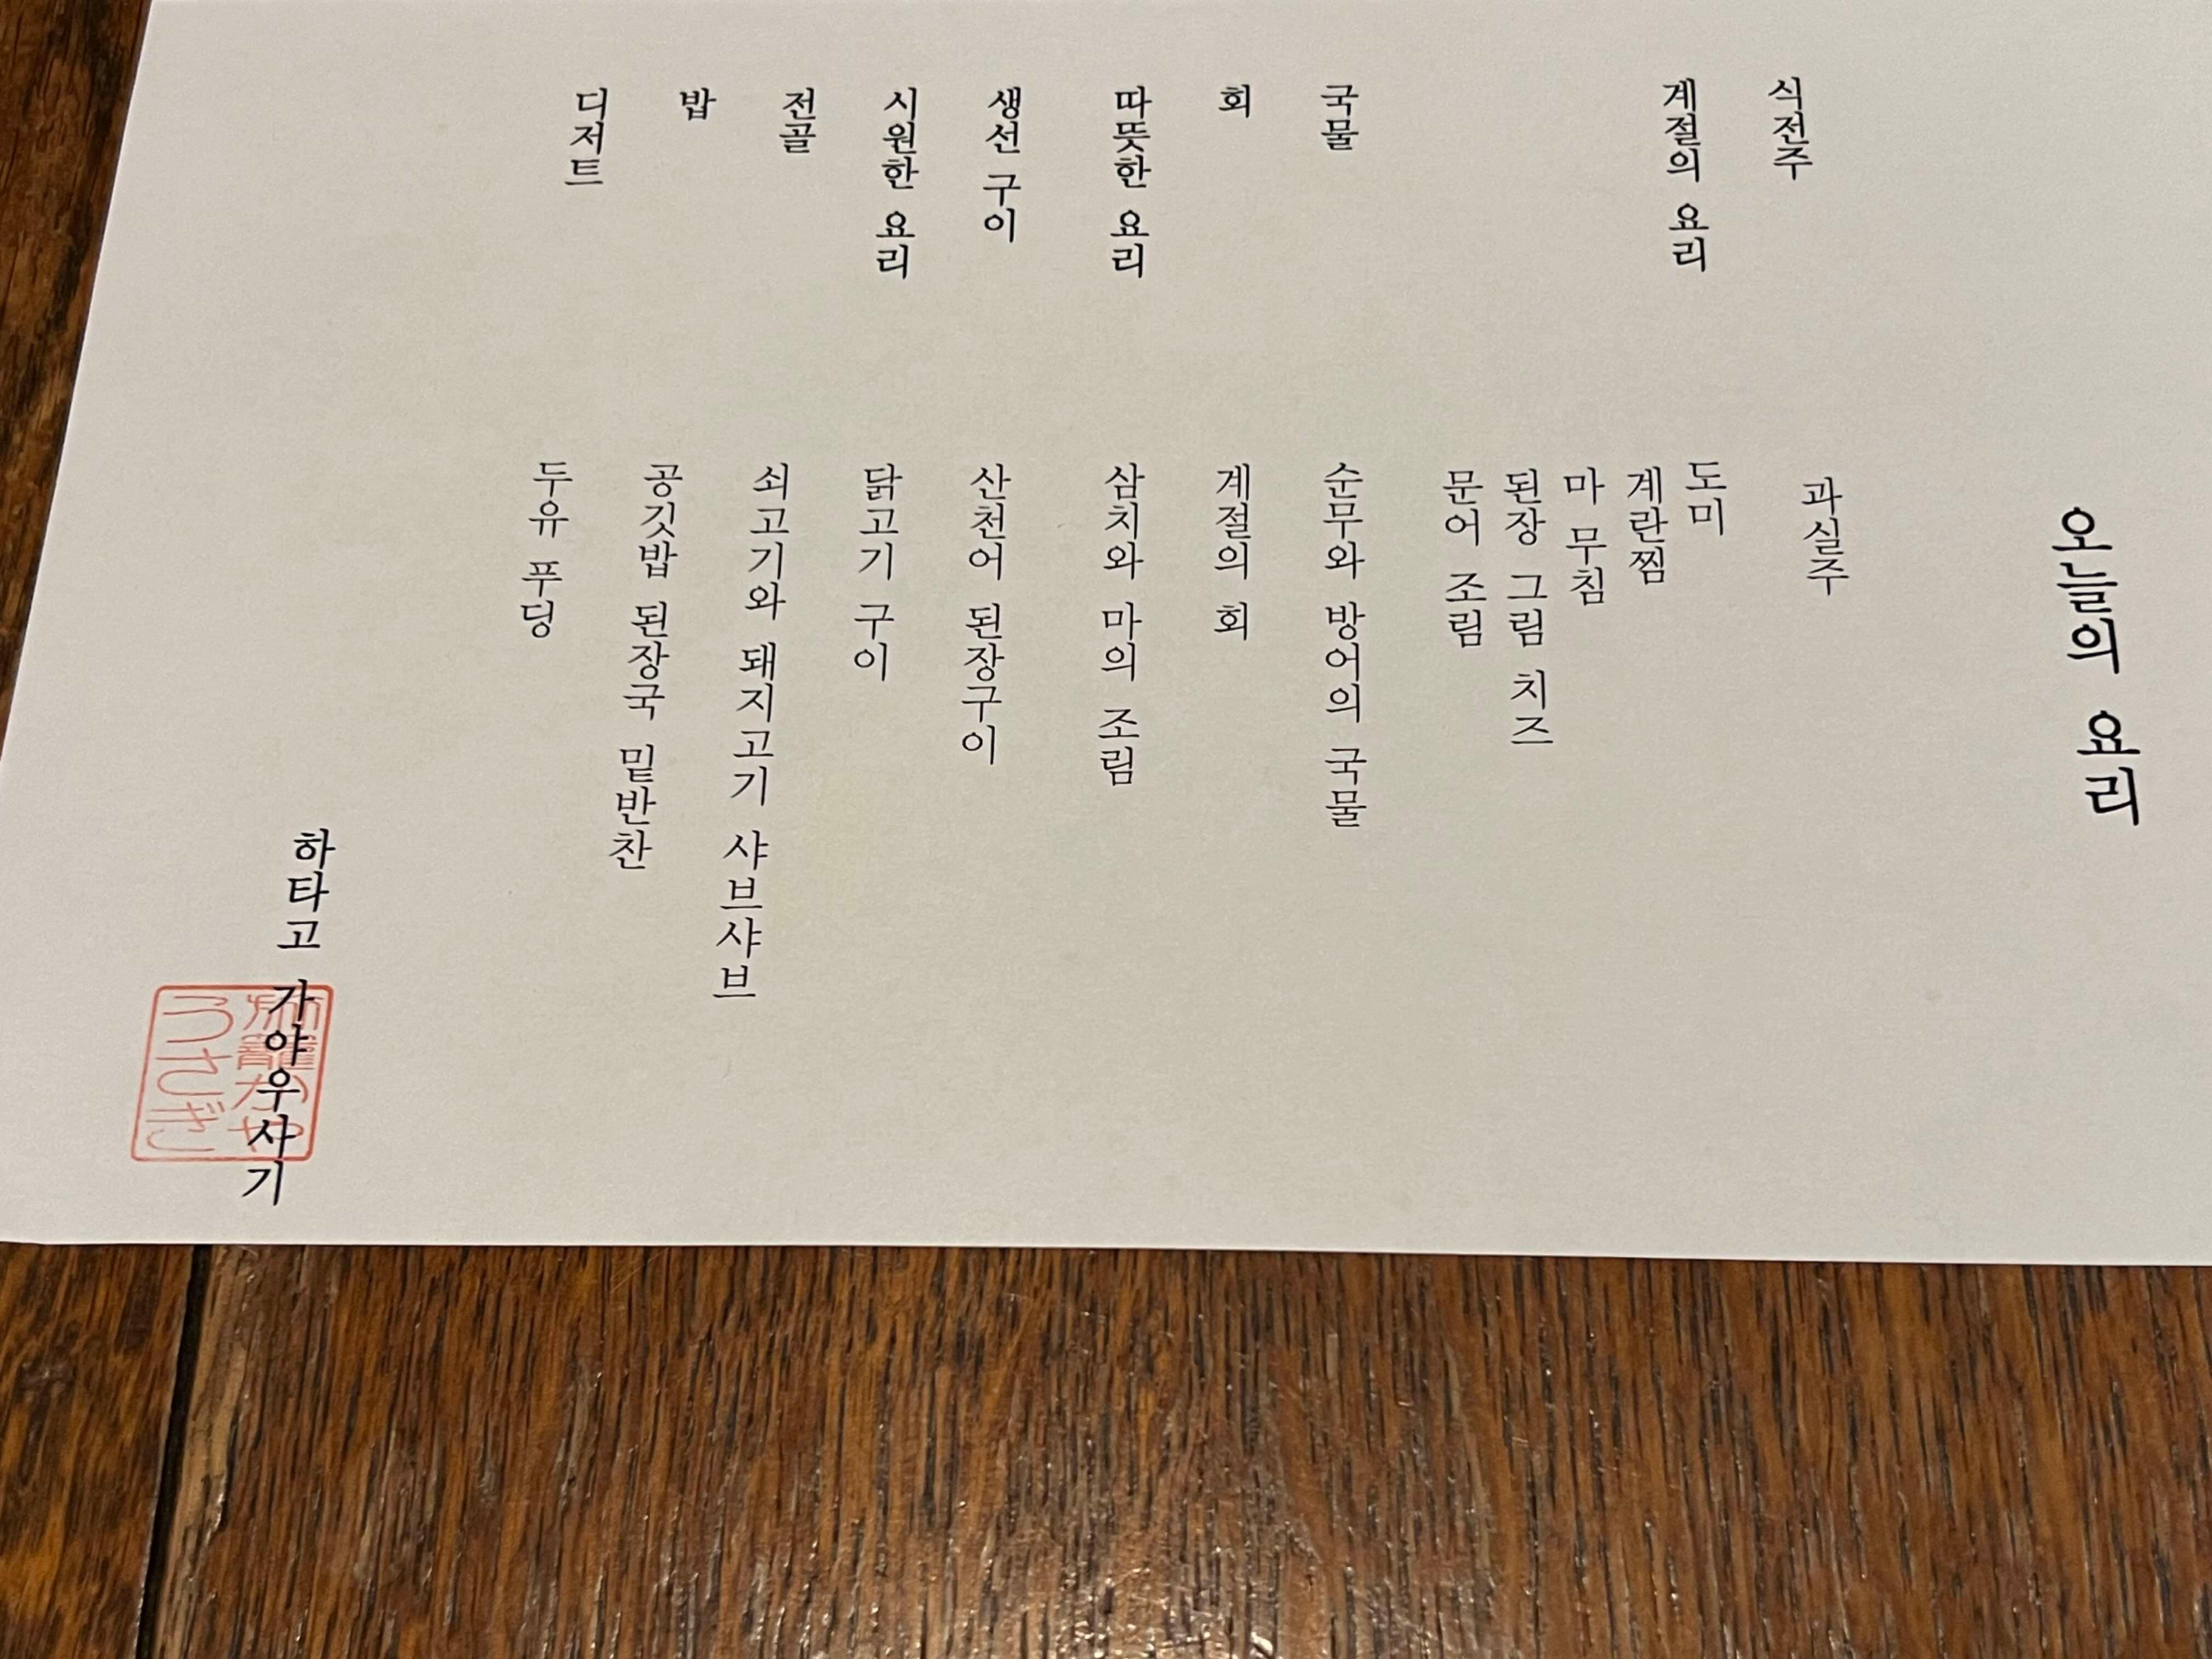 오늘의 요리
식전주
과실주
계절의 요리
도미
계란찜
마 무침
된장 그림 치즈
문어 조림
국물
순무와 방어의 국물
회
계절의 회
따뜻한 요리
삼치와 마의 조림
생선 구이
산천어 된장구이
시원한 요리
닭고기 구이
전골
쇠고기와 돼지고기 샤브샤브
밥
공깃밥 된장국 밑반찬
디저트
두유 푸딩
하타고 가야우사기
旅籠かや
うさぎ